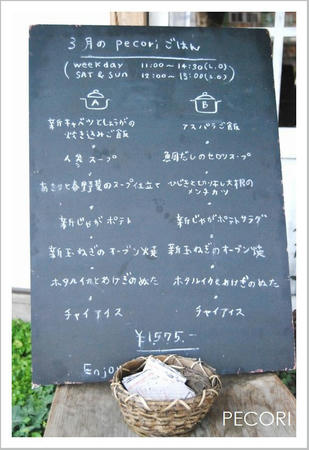 3月の pecori ごはん
weekday 11:00〜14:30(L.O)
SAT & SUN 12:00〜15:00(L.O)
A
新キャベツとしょうがの
炊き込みご飯
スープ
あさりと春野菜のスープ仕立て
新じゃがポテト
新玉ねぎのオーブン焼
ホタルイカとわけぎのぬた
チャイアイス
B
アスパラご飯
鯛だしのセロリスープ
ひじきと切り干し大根の
メンチカツ
新じゃがポテトサラダ
新玉ねぎのオーブン焼
ホタルイカとわけぎのぬた
チャイアイス
¥1575.-
Enjo
PECORI